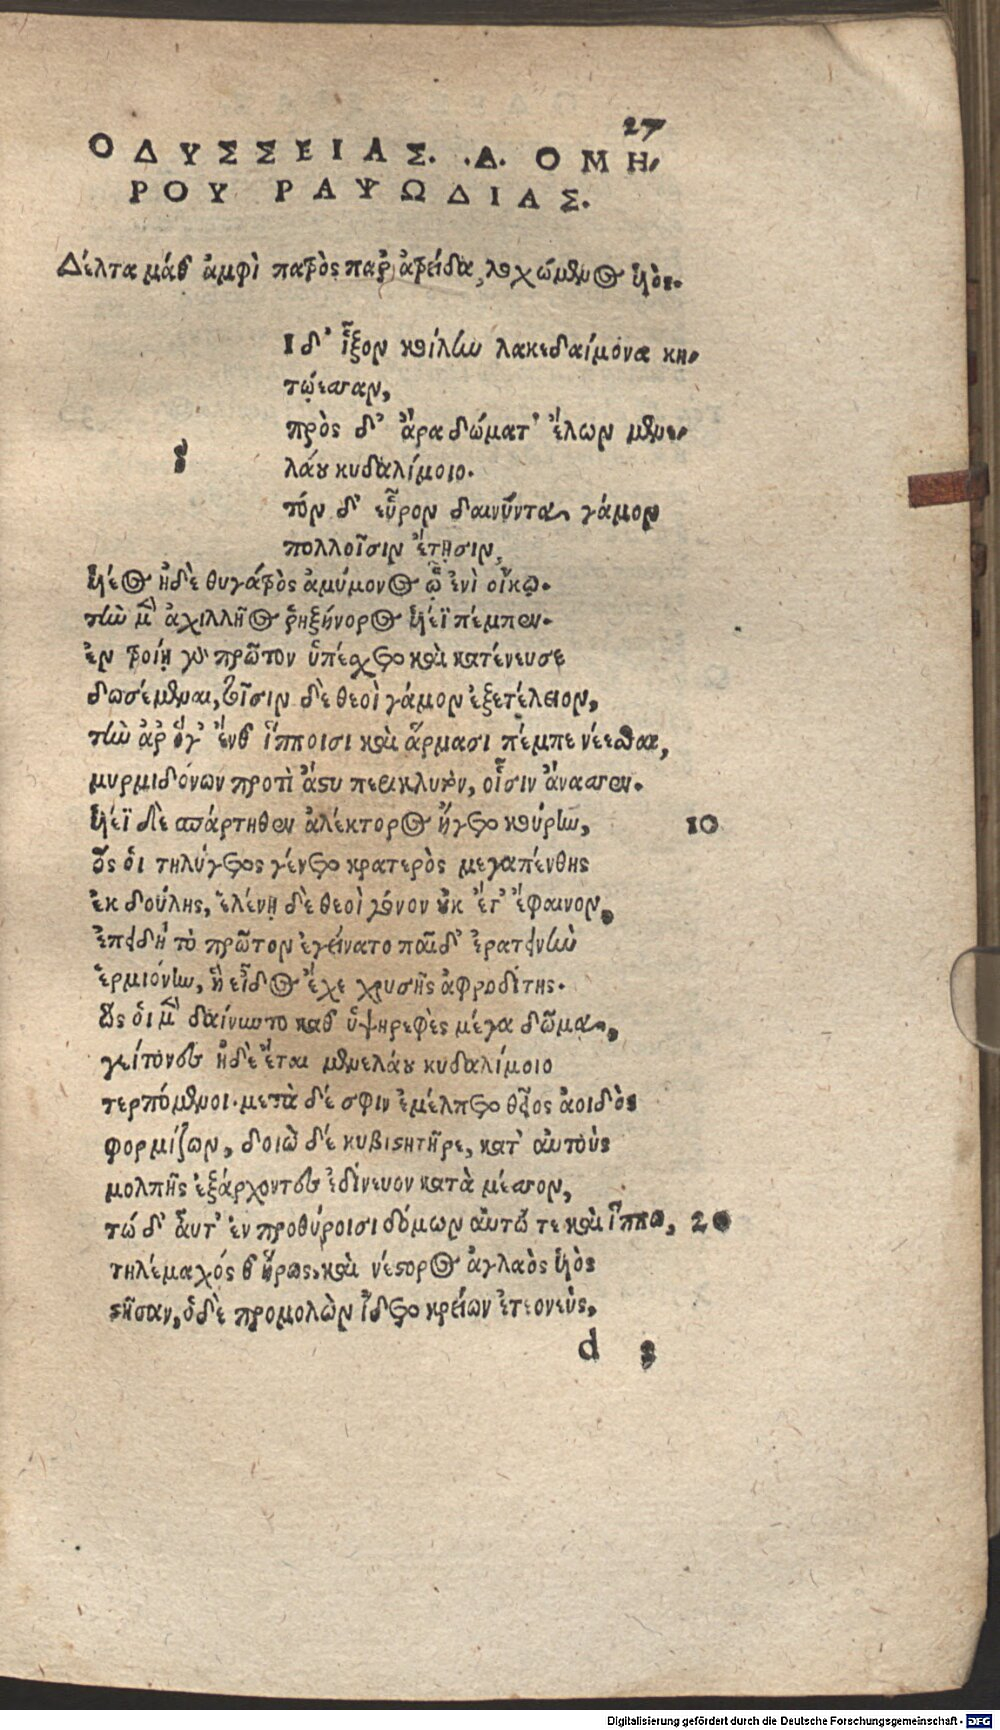 27
ΟΔΥΣΣΕΙΑΣ. .Δ. ΟΜΗ,
ΡΟΥ ΡΑΨΩΔΙΑΣ.
Δέλτα μάθ' ἀμφὶ πατρὸς παρ' ἀτρείδα, λοχώμενος υἱός.
Ι δ' ἷξον κοίλην λακεδαίμονα κη,
τώεσσαν,
πρὸς δ' ἄρα δώματ' ἔλων μενε,
λάου κυδαλίμοιο.
ο
τόν δ' εὗρον δαινύντα γάμον
πολλοῖσιν ἔτῃσιν,
υἱέος ἠδὲ θυγατρὸς ἀμύμονος ᾧ ἐνὶ οἴκῳ.
τὴν μὲν ἀχιλλῆος ῥηξήνορος υἱέϊ πέμπεν.
ἐν τροίῃ γὰρ πρῶτον ὑπέσχετο καὶ κατένευσε
δωσέμεναι, τοῖσιν δὲ θεοὶ γάμον ἐξετέλειον,
τὴν ἄρ' ὅγ' ἔνθ' ἵπποισι καὶ ἅρμασι πέμπε νέεσθαι,
μυρμιδόνων προτὶ ἄστυ περικλυτὸν, οἷσιν ἄνασσεν.
υἱέϊ δὲ σπάρτηθεν ἀλέκτορος ἤγετο κούρην, 10
ὅς ὁι τηλύγετος γένετο κρατερὸς μεγαπένθης
ἐκ δούλης, ἑλένῃ δὲ θεοὶ γόνον οὐκ ἔτ' ἔφαινον,
ἐπειδὴ τὸ πρῶτον ἐγείνατο παῖδ' ἐρατεινὴν
ἑρμιόνην, ἣ εἶδος ἔχε χρυσῆς ἀφροδίτης.
ὣς ὁι μὲν δαίνυντο καθ' ὑψηρεφὲς μέγα δῶμα,
γείτονες ἠδὲ ἔται μενελάου κυδαλίμοιο
τερπόμενοι. μετὰ δέ σφιν ἐμέλπετο θεῖος ἀοιδὸς
φορμίζων, δοιὼ δὲ κυβιστητῆρε, κατ' αὐτοὺς
μολπῆς ἐξάρχοντες ἐδίνευον κατὰ μέσσον,
τώ δ' αὖτ' ἐν προθύροισι δόμων αὐτώ τε καὶ ἵππω, 20
τηλέμαχός θ' ἥρως, καὶ νέστορος ἀγλαὸς υἱὸς
στῆσαν, ὁ δὲ προμολὼν ἴδετο κρείων ἐτεονεὺς,
d 3
Digitalisierung gefördert durch die Deutsche Forschungsgemeinschaft - DFG